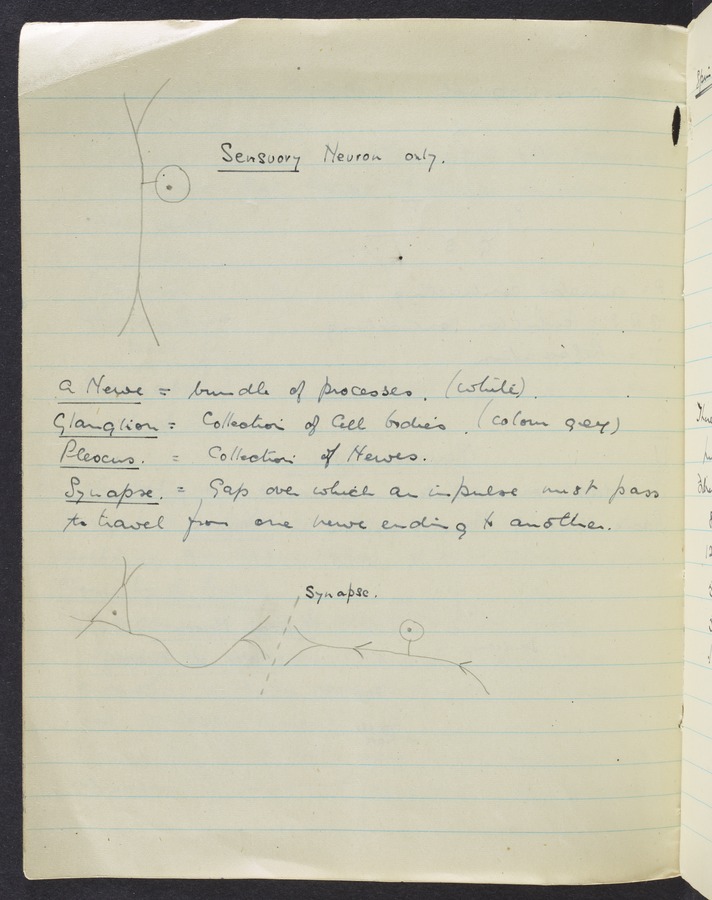 Sensuory Neuron only.
a Nerve = bundle of processes. (white).
Glanglion = Collection of Cell bodies. (colour grey)
Plexcus. = Collection of Nerves.
Synapse. = Gap over which an impulse must pass
to travel from one nerve ending to another.
Synapse.